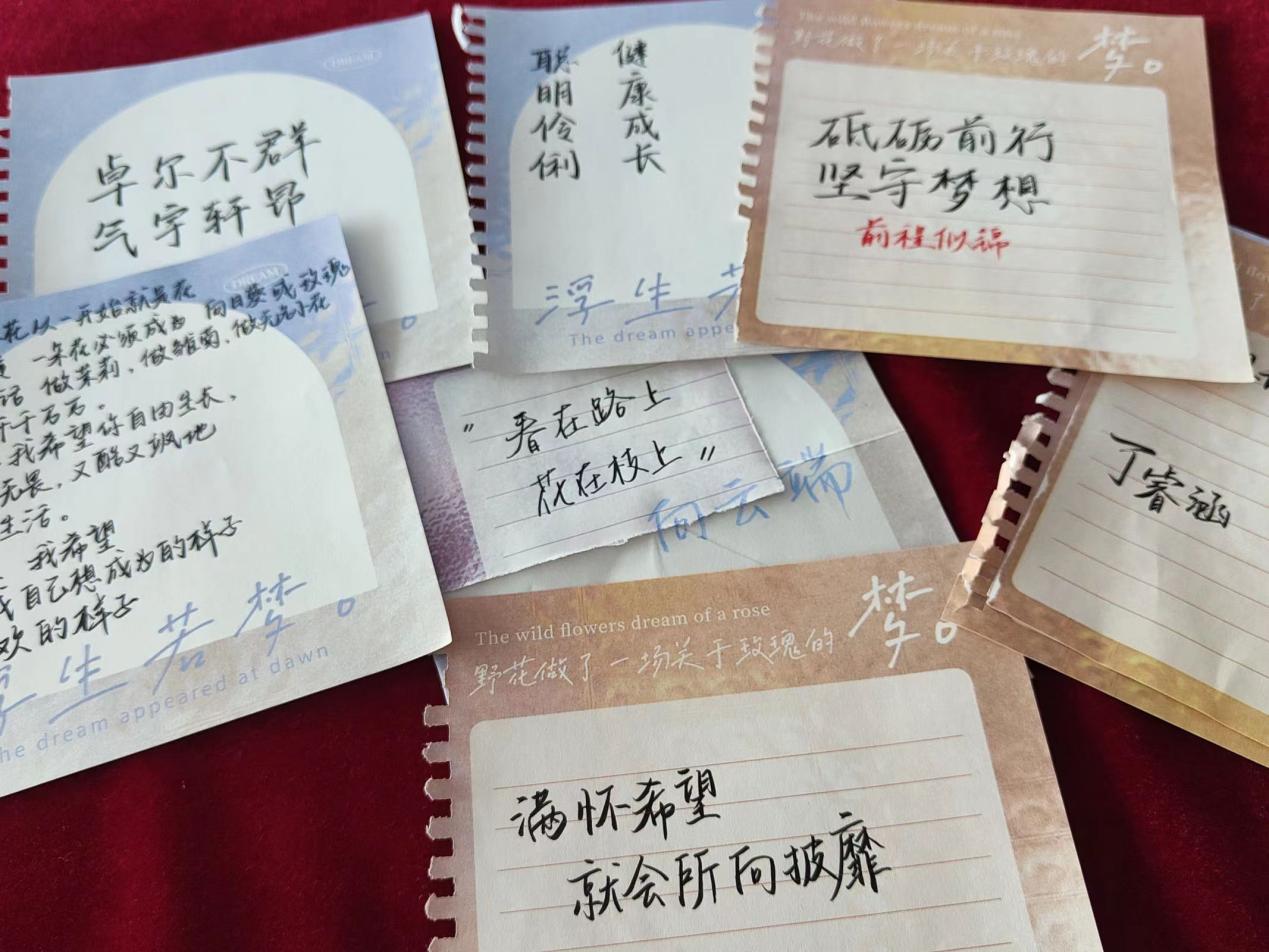 DREAM
卓尔不群
气宇轩昂
聪明伶俐
健康成长
浮生
The dream appe
The wild flowers dream of a rose
野花做了一场关于玫瑰的
梦。
砥砺前行
坚守梦想
前程似锦
DREAM
花从一开始就是花
一朵花必须成为 向日葵或玫瑰
话 做茉莉,做雏菊,做无名小花
千千万万。
我希望你自由生长,
无畏,又酷又飒地
生活。
我希望
成自己想成为的样子
欢的样子
浮生若梦。
he dream appeared at dawn
"春在路上
花在枝上"
向云端
丁睿涵
The wild flowers dream of a rose
野花做了一场关于玫瑰的
梦。
满怀希望
就会所向披靡